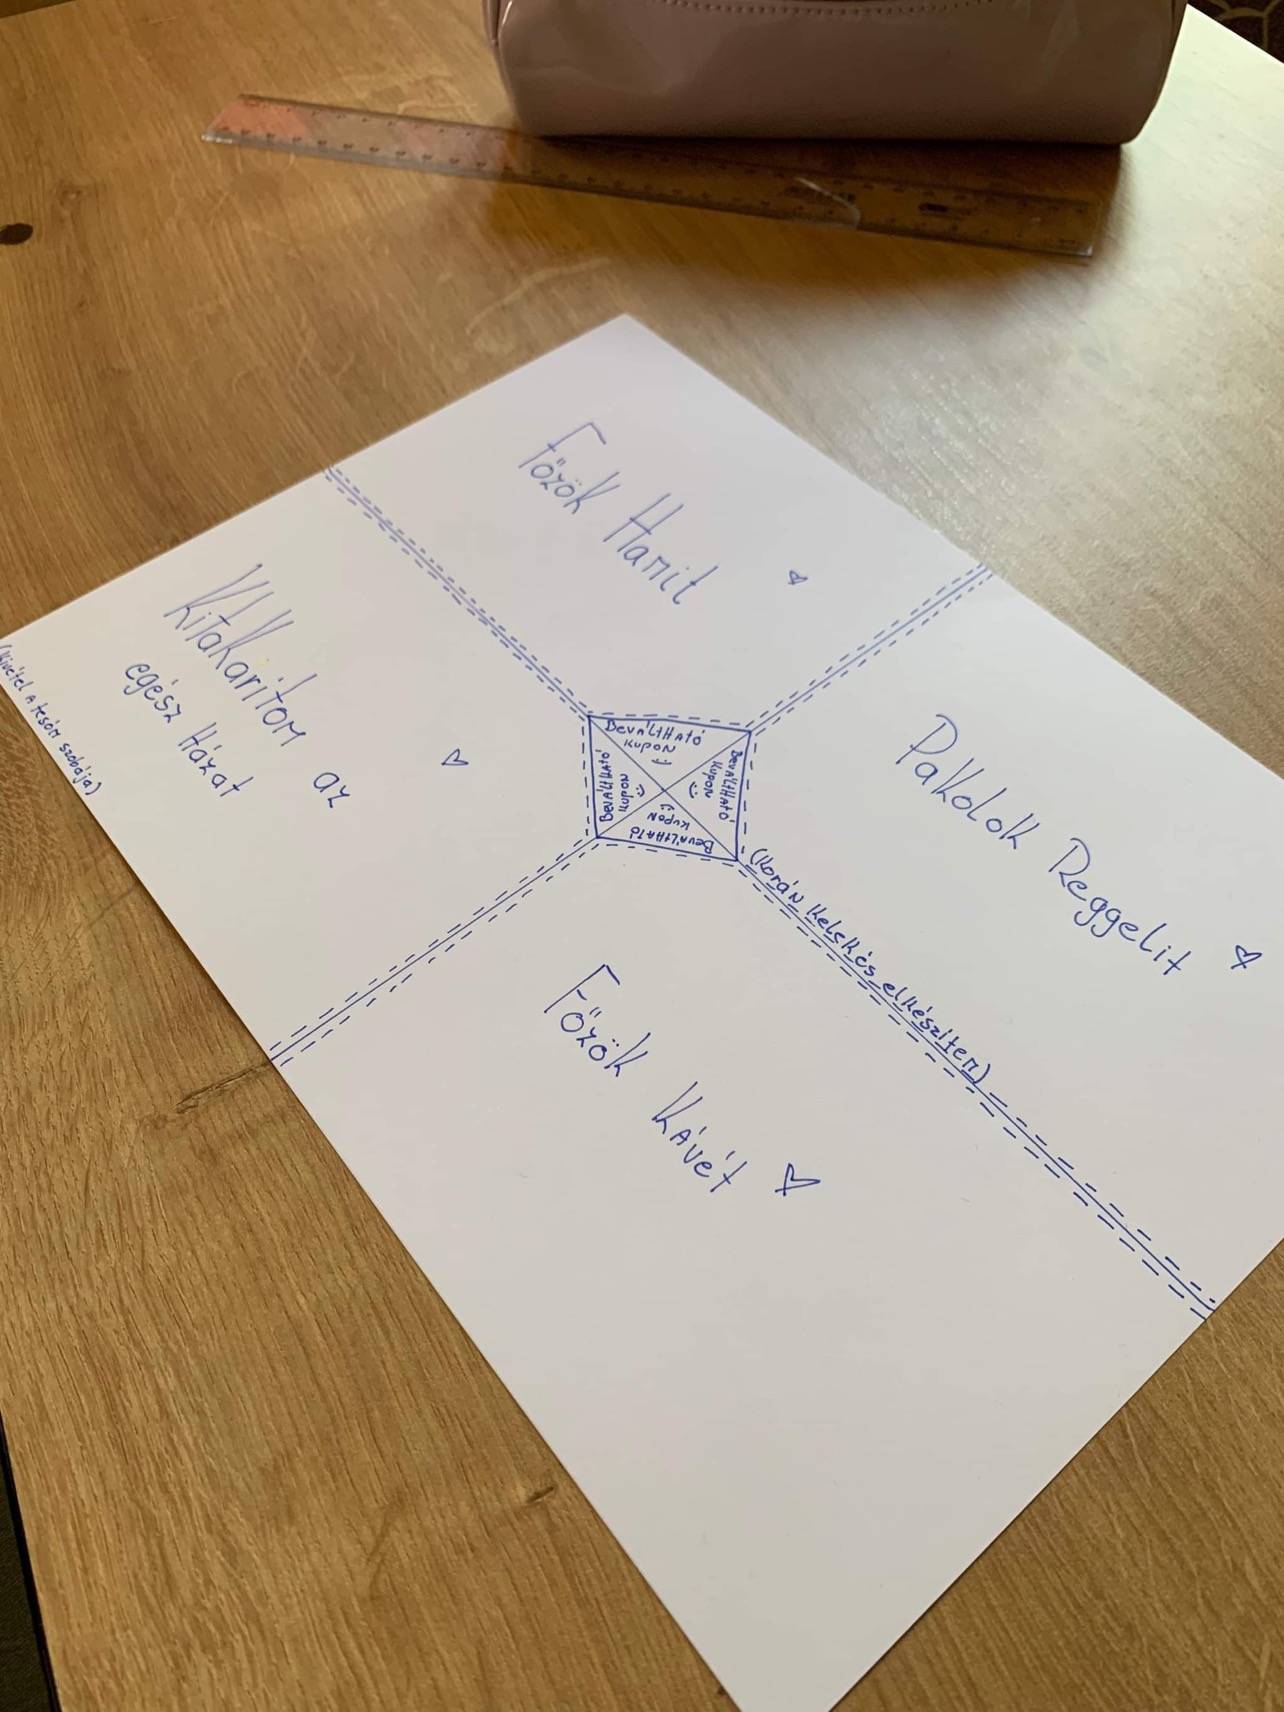 Főzök Hamit
Kitakaritom az
egész Házat
(kivétel a tesóm szobája)
BeváLtHató
kupon
BeváLtHató
kupon
BeváLtHató
kupon
BeváLtHató
kupon
Pakolok Reggelit
(korán kelek és elkészítem)
Főzök Kávét